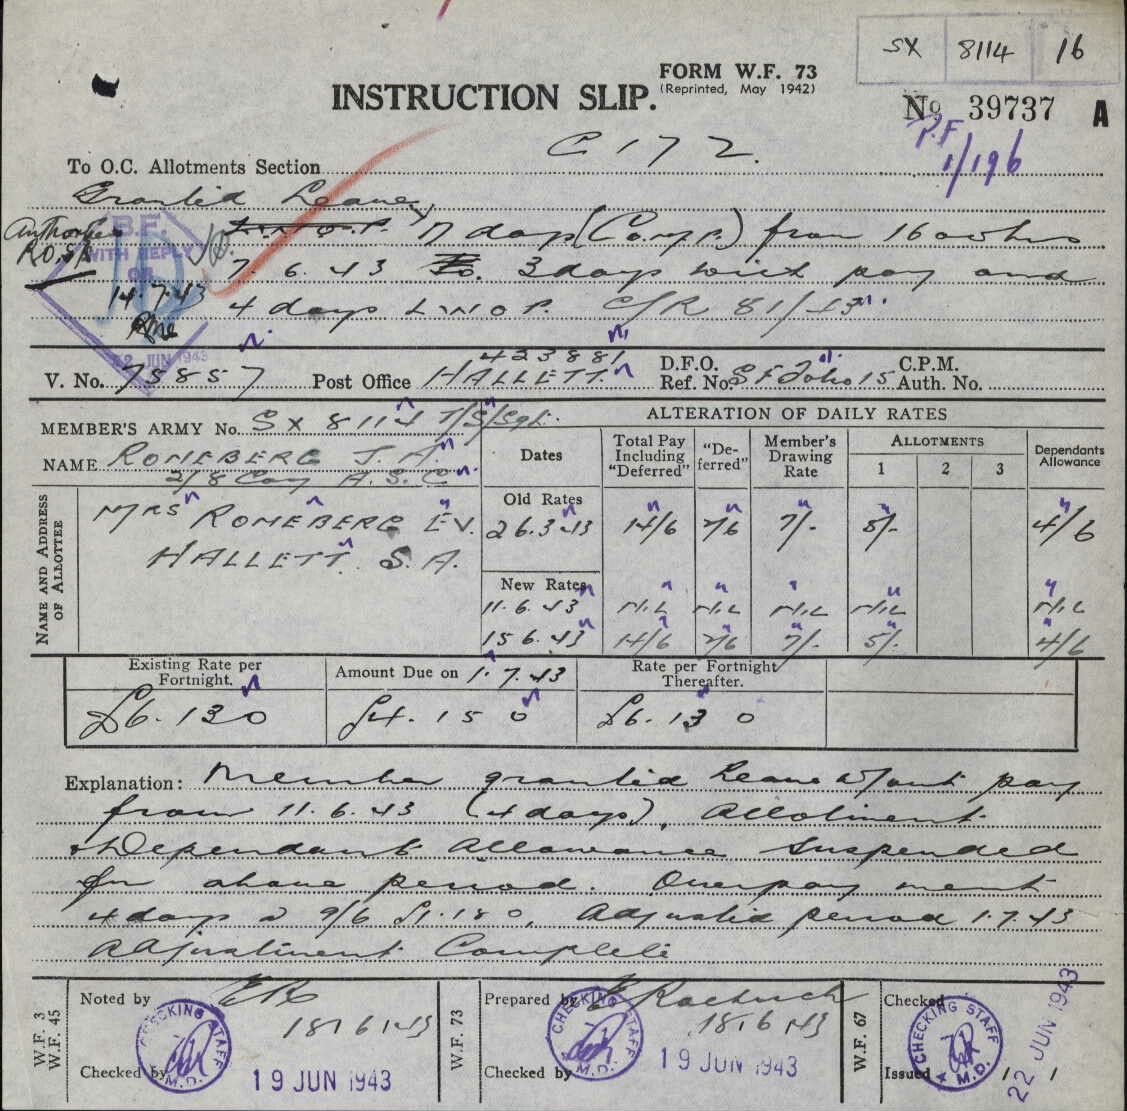 SX 8114 16
FORM W.F. 73
(Reprinted, May 1942)
INSTRUCTION SLIP.
No. 39737 A
P.F
1/196
C 172.
To O.C. Allotments Section
Granted Leave,
L.W.O.P. 7 days (Comp.) from 1600 hrs
7.6.43 To. 3 days with pay and
4 days L.W.O.P. C/R 81/43
Authorities
R.O.
B.F.
WITH REPLY
OR
14.7.43
22 JUN 1943
423881
V. No. 75857 Post Office HALLETT. D.F.O. Ref. No. C.P.M. Auth. No.
MEMBER'S ARMY No. SX 8114 T/S/Sgt.
NAME ROMEBERG J.A.
2/8 Coy A.S.C.
ALTERATION OF DAILY RATES
Dates
Total Pay Including "Deferred"
"Deferred"
Member's Drawing Rate
ALLOTMENTS
1 2 3
Dependants Allowance
NAME AND ADDRESS OF ALLOTTEE
MRS ROMEBERG E.V.
HALLETT. S.A.
Old Rates
26.3.43 14/6 7/6 7/- 5/- 4/6
New Rates
11.6.43 NIL NIL NIL NIL NIL
15.6.43 14/6 7/6 7/- 5/- 4/6
Existing Rate per Fortnight.
Amount Due on 1.7.43
Rate per Fortnight Thereafter.
£6.13 0 £4.15 0 £6.13 0
Explanation: Member granted Leave w/out pay
from 11.6.43 (4 days). Allotment
& Dependant Allowance suspended
for above period. Overpayment
4 days @ 9/6 £1.18 0, Adjusted period 1.7.43
Adjustment Complete
W.F. 3
W.F. 45
Noted by
18.6.43
Checked by
CHECKING STAFF
M.D.
19 JUN 1943
W.F. 73
Prepared by
18.6.43
Checked by
CHECKING STAFF
M.D.
19 JUN 1943
W.F. 67
Checked
Issued
CHECKING STAFF
M.D.
22 JUN 1943